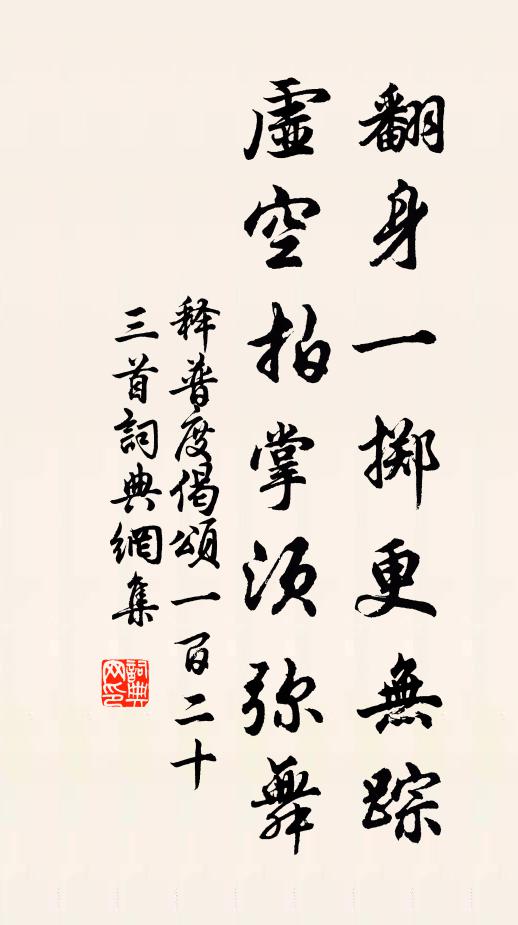 翻身一擲更無踪
虛空拍掌須弥舞
释普度偈頌一百二十
三首詞典網集
詞典网印